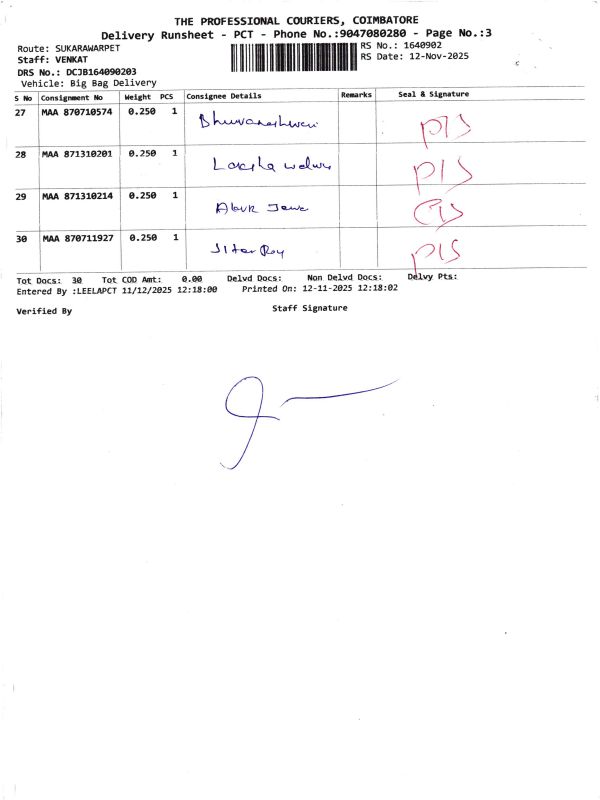 THE PROFESSIONAL COURIERS, COIMBATORE
Delivery Runsheet - PCT - Phone No.:9047080280 - Page No.:3
Route: SUKARAWARPET RS No.: 1640902
Staff: VENKAT RS Date: 12-Nov-2025
DRS No.: DCJB164090203
Vehicle: Big Bag Delivery
S No Consignment No Weight PCS Consignee Details Remarks Seal & Signature
27 MAA 870710574 0.250 1 Bhuvaneshwari
28 MAA 871310201 0.250 1
29 MAA 871310214 0.250 1
30 MAA 870711927 0.250 1
Tot Docs: 30 Tot COD Amt: 0.00 Delvd Docs: Non Delvd Docs: Delvy Pts:
Entered By :LEELAPCT 11/12/2025 12:18:00 Printed On: 12-11-2025 12:18:02
Verified By Staff Signature